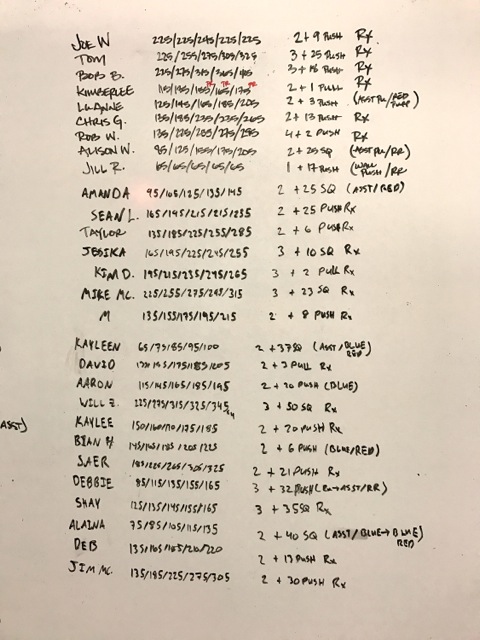 JOE W 225/225/245/225/225 2 + 9 PUSH Rx
TOM 225/255/275/305/325 3 + 25 PUSH Rx
BOB B. 225/275/315/365/405 3 + 16 PUSH Rx
KIMBERLEE 115/145/155/165/175 2 + 1 PULL Rx
LUANNE 125/145/165/185/205 2 + 3 PUSH (ASST PU/RED
CHRIS G. 135/185/235/255/265 2 + 13 PUSH Rx
ROB W. 135/225/255/275/285 4 + 2 PUSH Rx
ALISON W. 85/125/155/175/205 2 + 25 SQ (ASST PU/RR)
JILL R. 65/65/65/65/65 1 + 17 PUSH (WALL PUSH/RR
AMANDA 95/105/125/135/145 2 + 25 SQ (ASST/RED)
SEAN L. 165/195/215/215/235 2 + 25 PUSH Rx
TAYLOR 135/185/225/255/285 2 + 6 PUSH Rx
JESIKA 165/195/225/245/255 3 + 10 SQ Rx
KIM D. 195/215/235/245/265 3 + 2 PULL Rx
MIKE MC. 225/255/275/295/315 3 + 23 SQ Rx
M 135/155/175/195/215 2 + 8 PUSH Rx
KAYLEEN 65/75/85/95/100 2 + 37 SQ (ASST/BLUE RED)
DAVID 2 + 3 PULL Rx
AARON 115/145/165/185/195 2 + 20 PUSH (BLUE)
WILL Z. 225/275/315/325/345 3 + 50 SQ Rx
ASST)
KAYLEE 150/160/170/175/185 2 + 20 PUSH Rx
BRIAN H 145/165/185/205/225 2 + 6 PUSH (BLUE/RED)
SAER 185/225/265/305/325 2 + 21 PUSH Rx
DEBBIE 85/115/135/155/165 3 + 32 PUSH (Rx→ASST/RR)
SHAY 125/135/145/155/165 3 + 35 SQ Rx
ALAINA 75/85/105/115/135 2 + 40 SQ (ASST/BLUE→BLUE RED)
DEB 135/165/185/210/220 2 + 13 PUSH Rx
JIM MC. 135/185/225/275/305 2 + 30 PUSH Rx